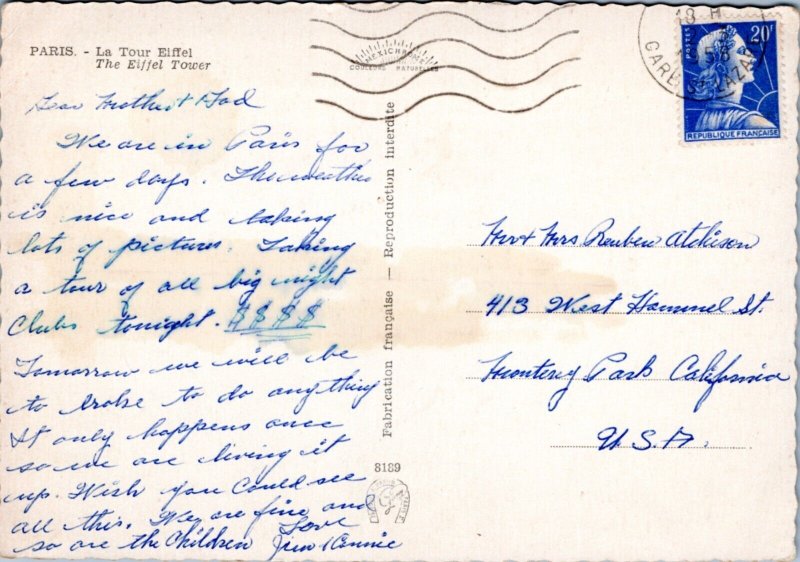 PARIS. - La Tour Eiffel
The Eiffel Tower
MEXICHROME
COULEURS NATURELLES
18 H
58
GARE ST LAZARE
POSTES
20F
REPUBLIQUE FRANÇAISE
Dear Mother & Dad
We are in Paris for
a few days. The weather
is nice and taking
lots of pictures. Taking
a tour of all big night
Clubs tonight. $$$$
Tomorrow we will be
to broke to do anything
It only happens once
so we are living it
up. Wish you could see
all this. We are fine and
so are the Children
Love
Jim & Connie
Fabrication française — Reproduction interdite
8189
Mr & Mrs Reuben Atchison
413 West Hammel St.
Monterey Park California
U.S.A.